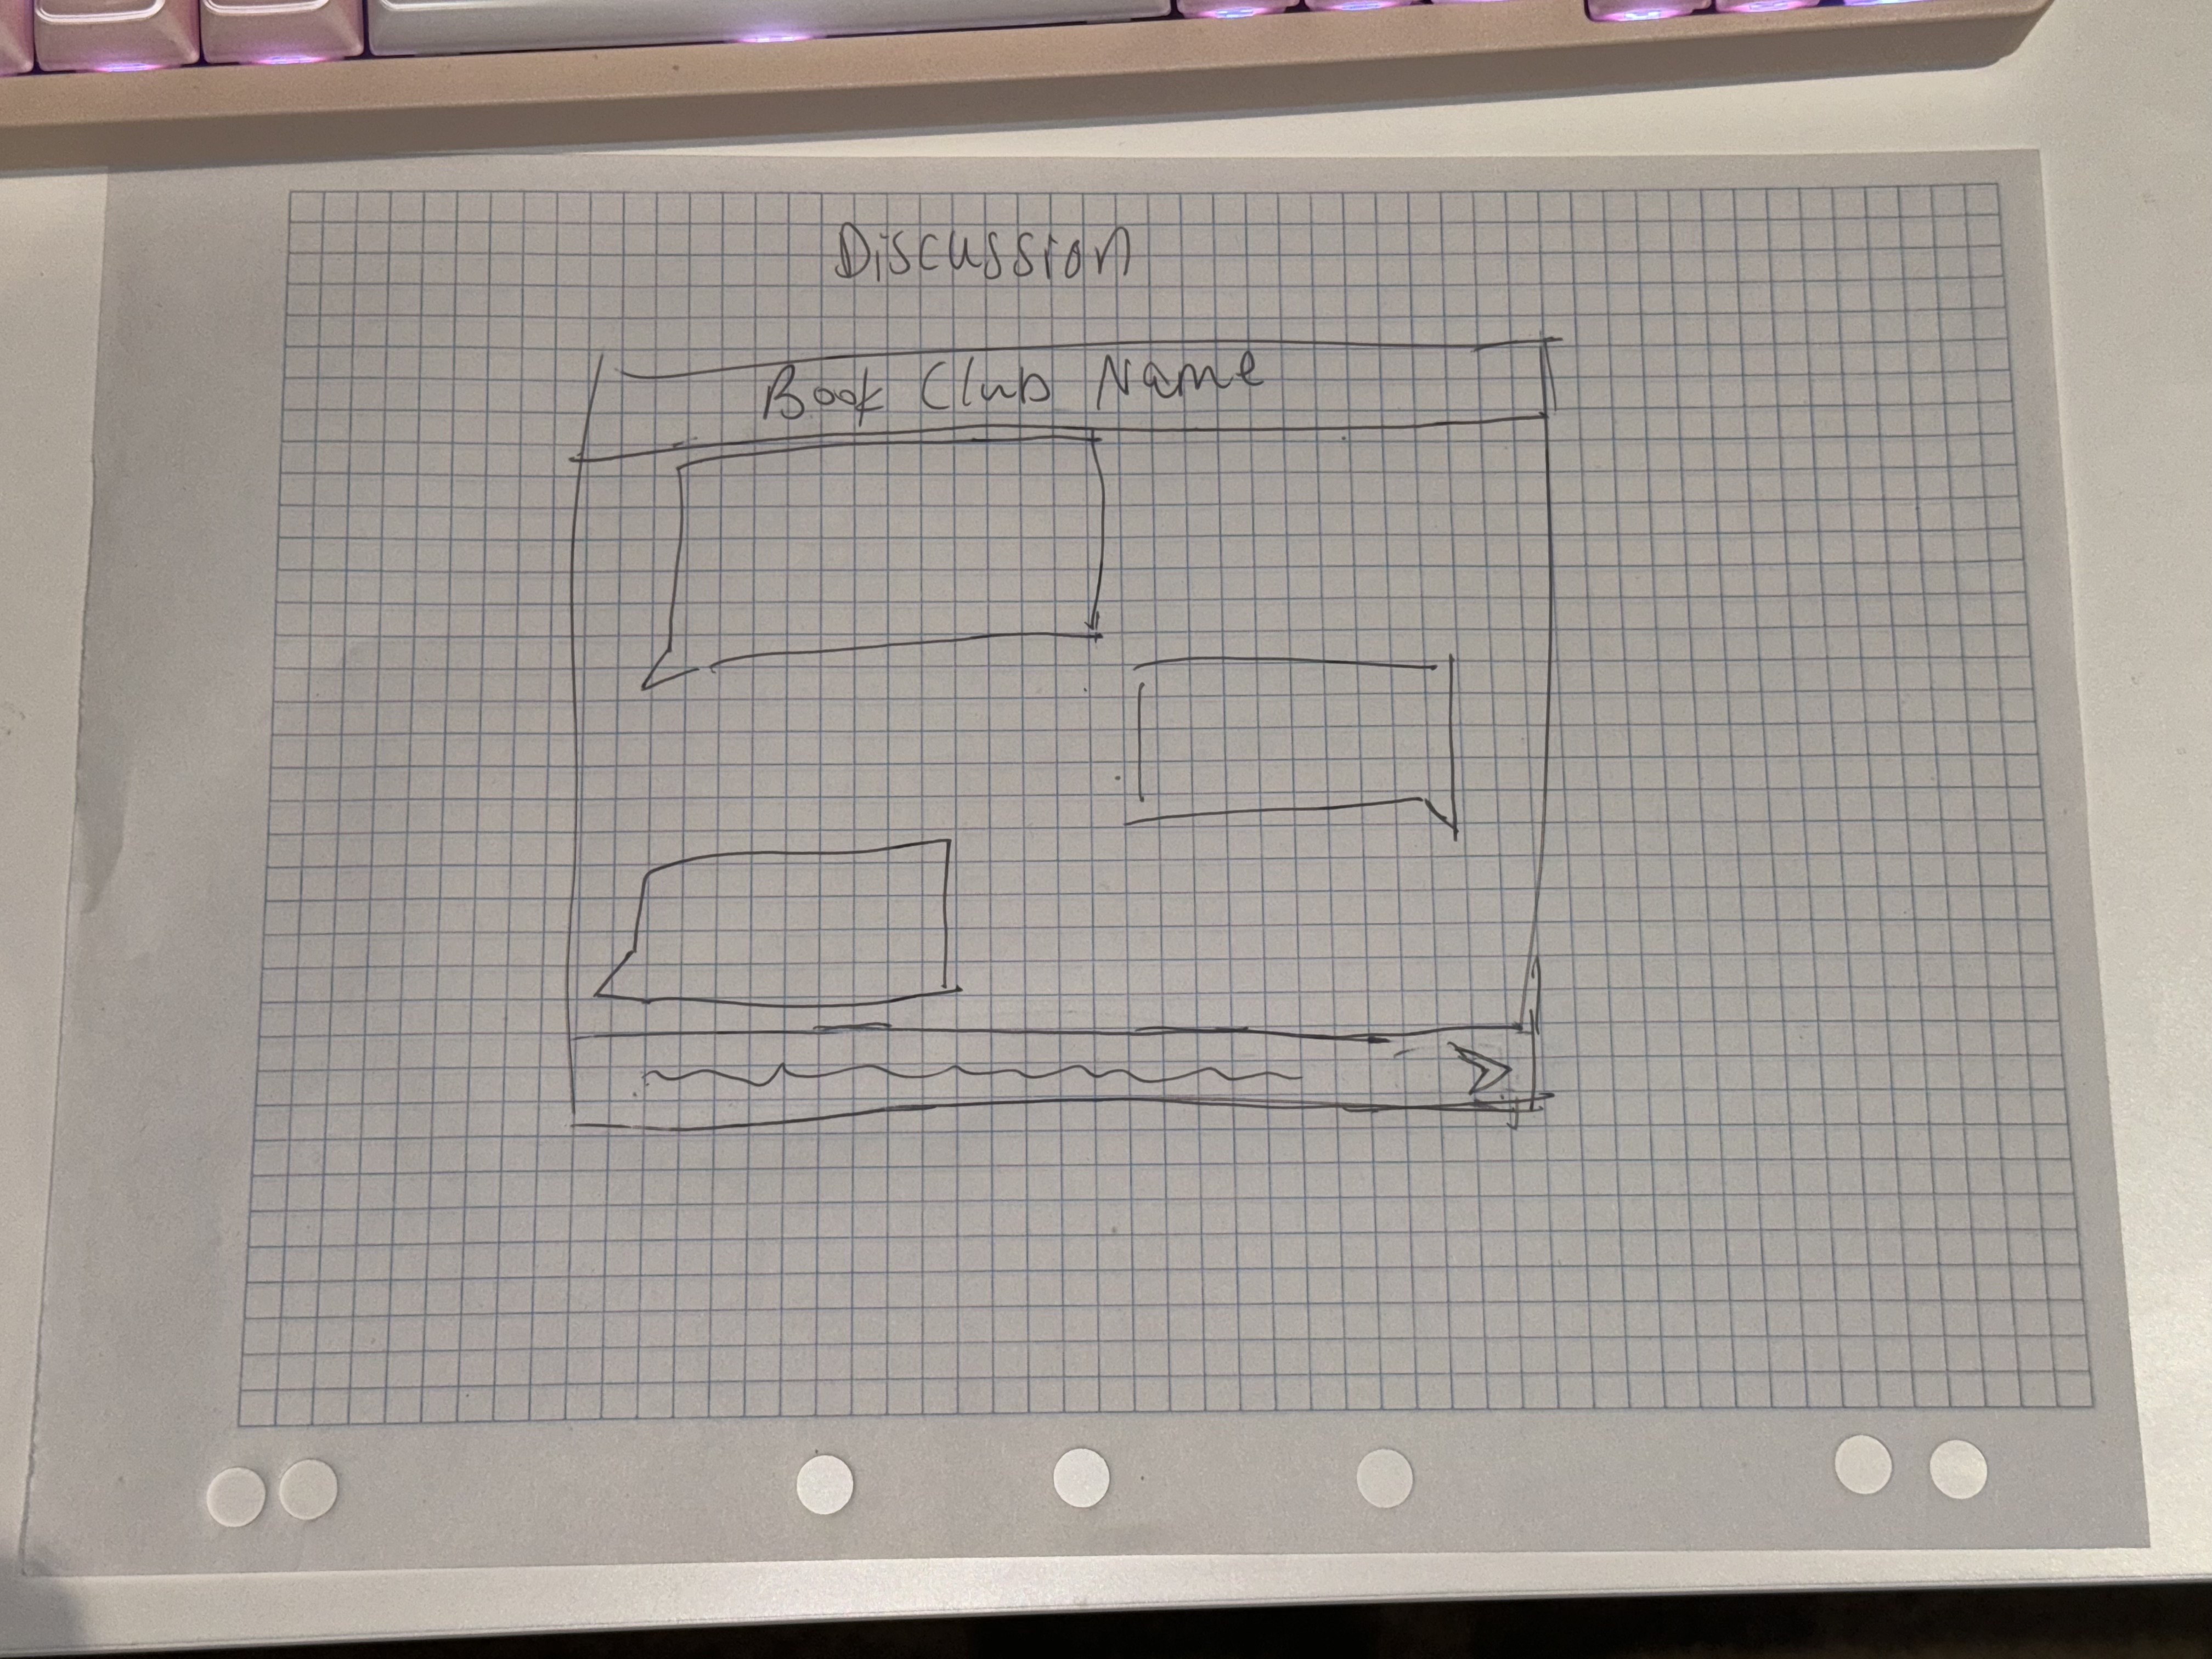 Discussion
Book Club Name